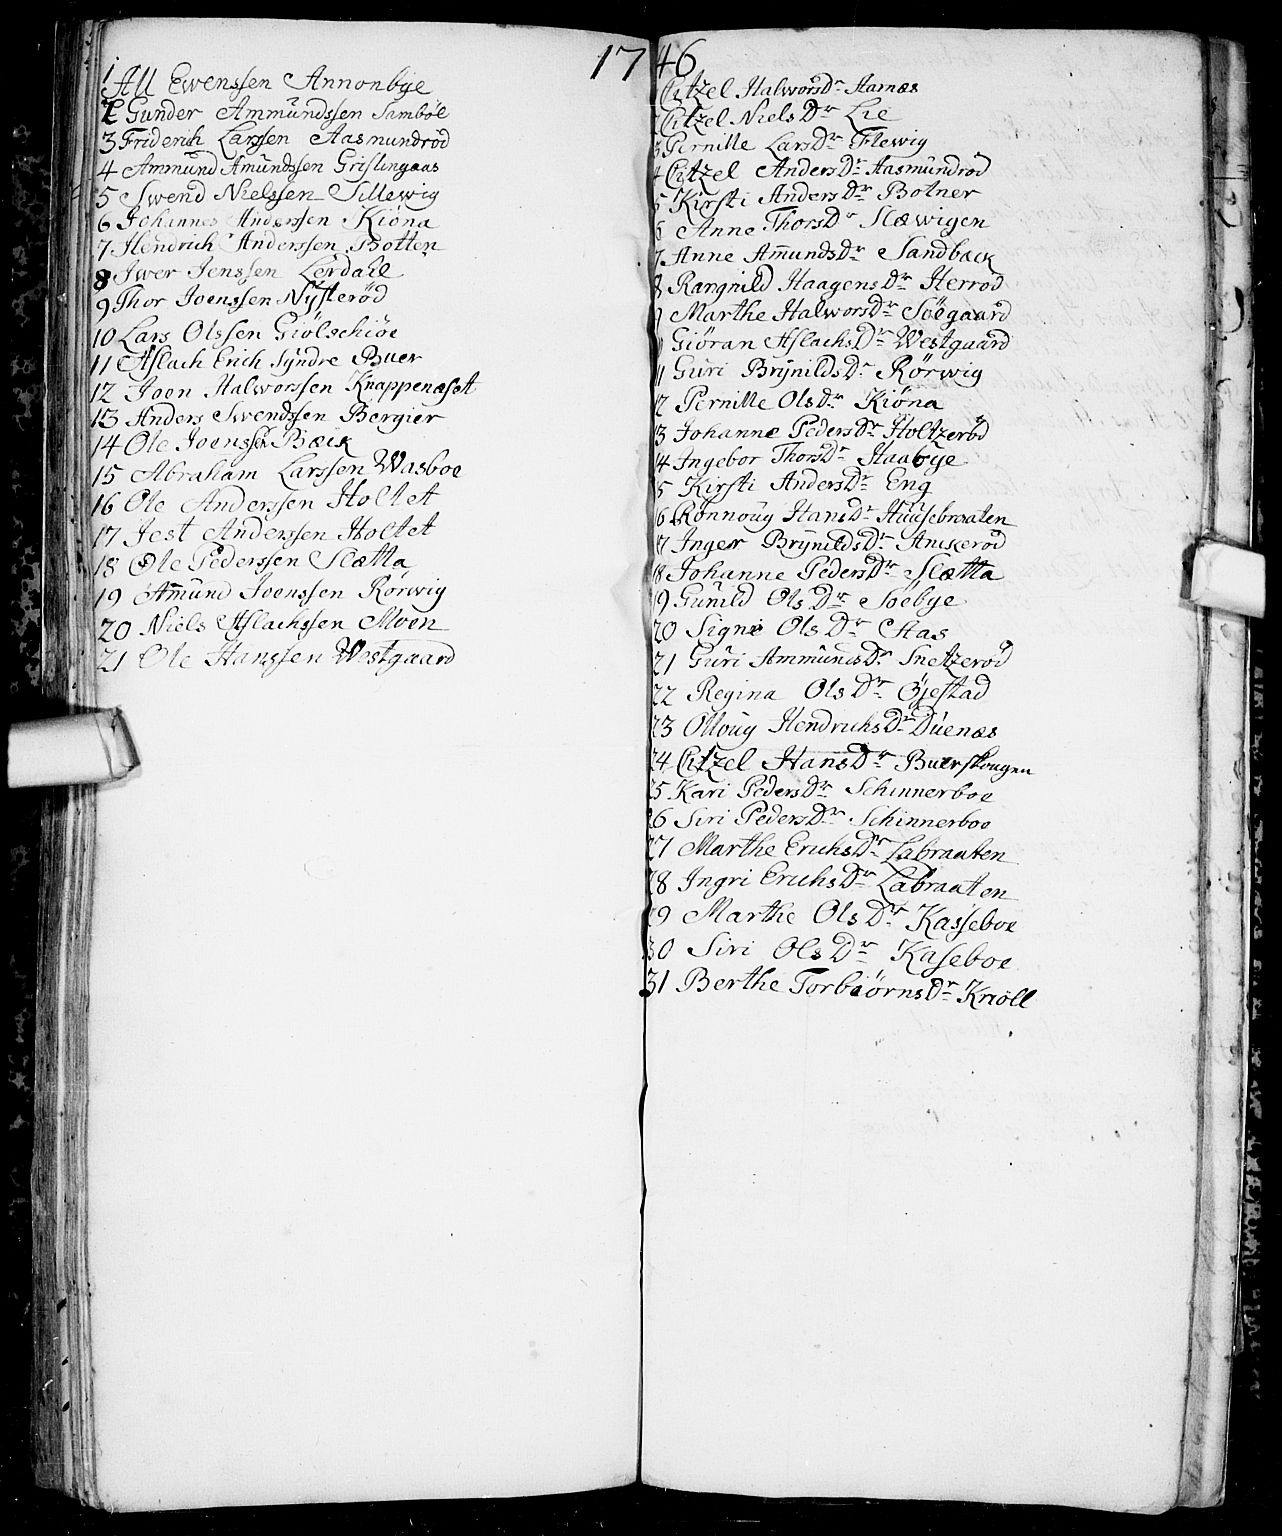 1746
1 All Ewenssen Annonbye
2 Gunder Ammundssen Samboe
3 Friderich Larssen Aasmundrød
4 Ammund Amundssen Grislingaas
5 Swend Nielssen Sillewig
6 Johannes Anderssen Kiöna
7 Hendrich Anderssen Botten
8 Iwer Jenssen Lerdahl
9 Thor Joenssen Nysterød
10 Lars Olssen Giölschiöe
11 Aslach Erich Syndre Buer
12 Joen Halworssen Knappenæset
13 Anders Swendssen Bergier
14 Ole Joenssen Bæck
15 Abraham Larssen Wasboe
16 Ole Anderssen Holtet
17 Jest Anderssen Holtet
18 Ole Pederssen Slætta
19 Amund Joenssen Rörwig
20 Niels Aslachssen Moen
21 Ole Hanssen Westgaard
Citzel HalworsDr Aarnæs
Citzel NielsDr Lie
3 Pernille LarsDr Flewig
4 Citzel AndersDr Aasmundrød
5 Kirsti AndersDr Botner
6 Anne ThorsDr Slæwigen
7 Anne AmundsDr Sandback
8 Rangnild HaagensDr Herrød
Marthe HalworsDr Söegaard
Giöran AslachsDr Westgaard
11 Guri BrynildsDr Rörwig
12 Pernille OlsDr Kiöna
13 Johanne PedersDr Holtzerød
14 Ingebor ThorsDr Haabye
15 Kirsti AndersDr Eng
16 Rönnoug HansDr Huusebraaten
17 Inger BrynildsDr Aniskerød
18 Johanne PedersDr Slætta
19 Gunild OlsDr Söebye
20 Signe OlsDr Aas
21 Guri AmmundsDr Snetzerød
22 Regina OlsDr Öjestad
23 Olloug HendrichsDr Duenæs
24 Citzel HansDr Buerskougen
25 Kari PedersDr Schinnerboe
26 Siri PedersDr Schinnerboe
27 Marthe ErichsDr Labraaten
28 Ingri ErichsDr Labraaten
29 Marthe OlsDr Kasseboe
30 Siri OlsDr Kaseboe
31 Berthe TorbiörnsDr Kniöll